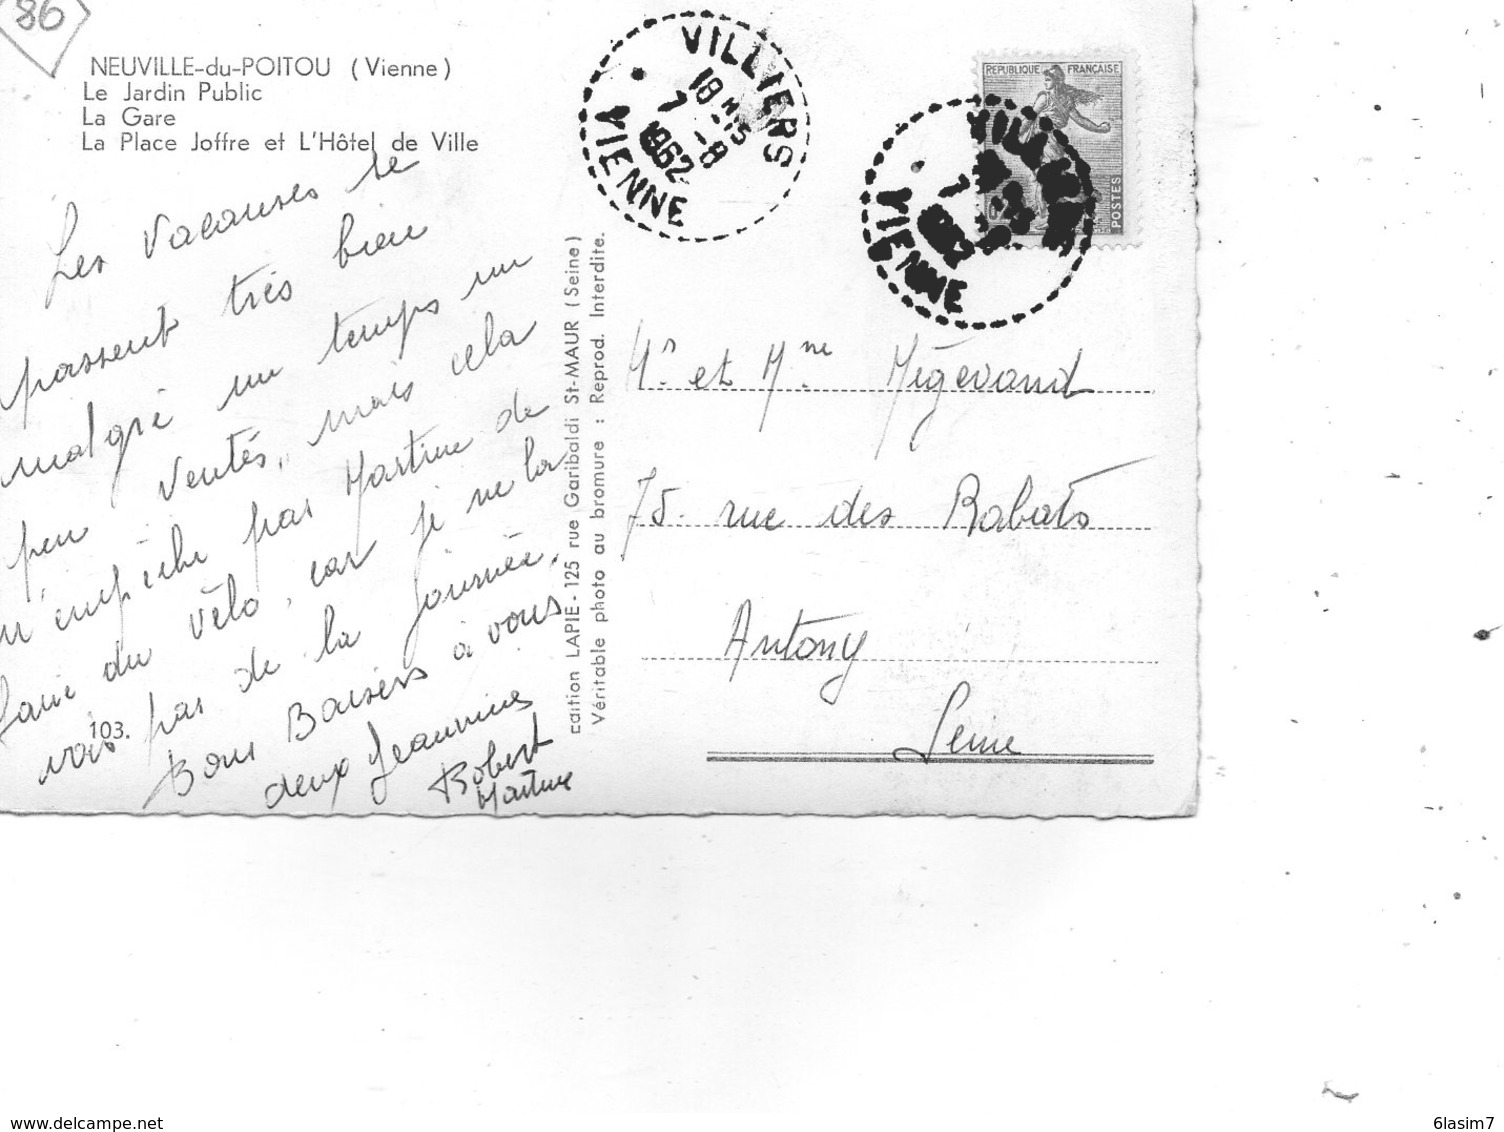 86
NEUVILLE-du-POITOU (Vienne)
Le Jardin Public
La Gare
La Place Joffre et L'Hôtel de Ville
Les vacances se
passent très bien
malgré un temps un
peu ventés, mais cela
n'empêche pas Martine de
faire du vélo, car je ne la
vois pas de la journée.
Bons Baisers à vous
deux Jeannine
Robert
Martine
103.
édition LAPIE - 125 rue Garibaldi St-MAUR (Seine)
Véritable photo au bromure : Reprod. Interdite.
VILLIERS
18 H 15
7 - 8
1962
VIENNE
REPUBLIQUE FRANÇAISE
POSTES
VIENNE
Mr et Mme Mégevand
75. rue des Rabats
Antony
Seine
www.delcampe.net
6lasim7